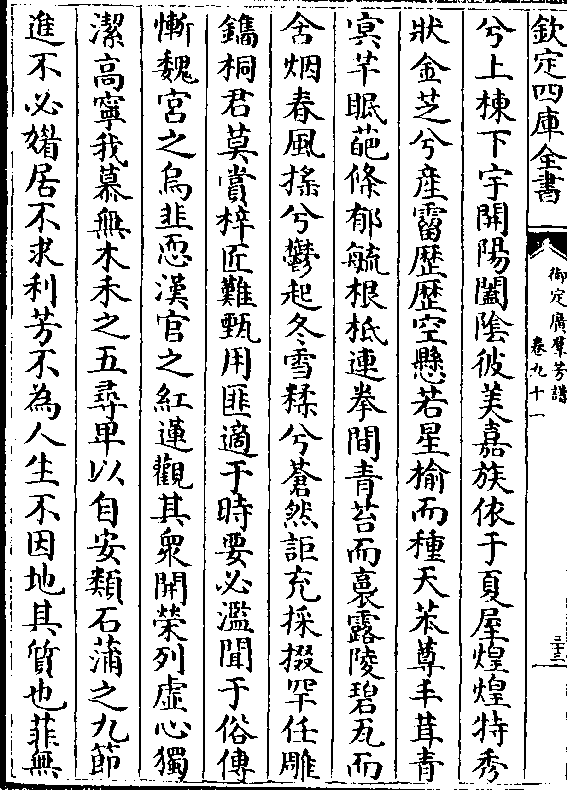 欽定四庫全書
御定廣羣芳譜
卷九十一
三十三
兮上棟下宇開陽闔陰彼美嘉族依于夏屋煌煌特秀
狀金芝兮產霤歷歷空懸若星榆而種天苯䔿丰茸青
㝠芊眠葩條郁毓根柢連拳間青苔而裛露陵碧瓦而
含烟春風揺兮鬱起冬雪糅兮蒼然詎充採掇罕任雕
鐫桐君莫賞梓匠難甄用匪適于時要必濫聞于俗傳
慚魏宮之烏韭恧漢官之紅蓮觀其衆開榮列虛心獨
潔高寧我慕無木禾之五尋卑以自安類石蒲之九節
進不必媚居不求利芳不為人生不因地其質也菲無